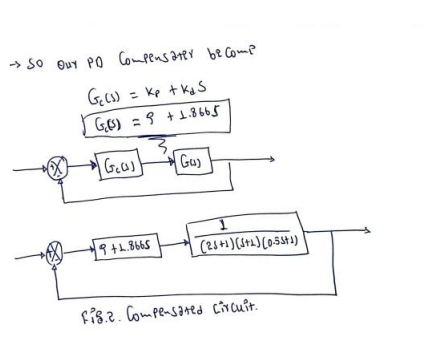 → so our PD Compensater become
Gc(s) = kp + kds
Gc(s) = 9 + 1.866s
Gc(s)
G(s)
9+1.866s
1
(2s+1)(s+1)(0.5s+1)
Fig.2. Compensated Circuit.